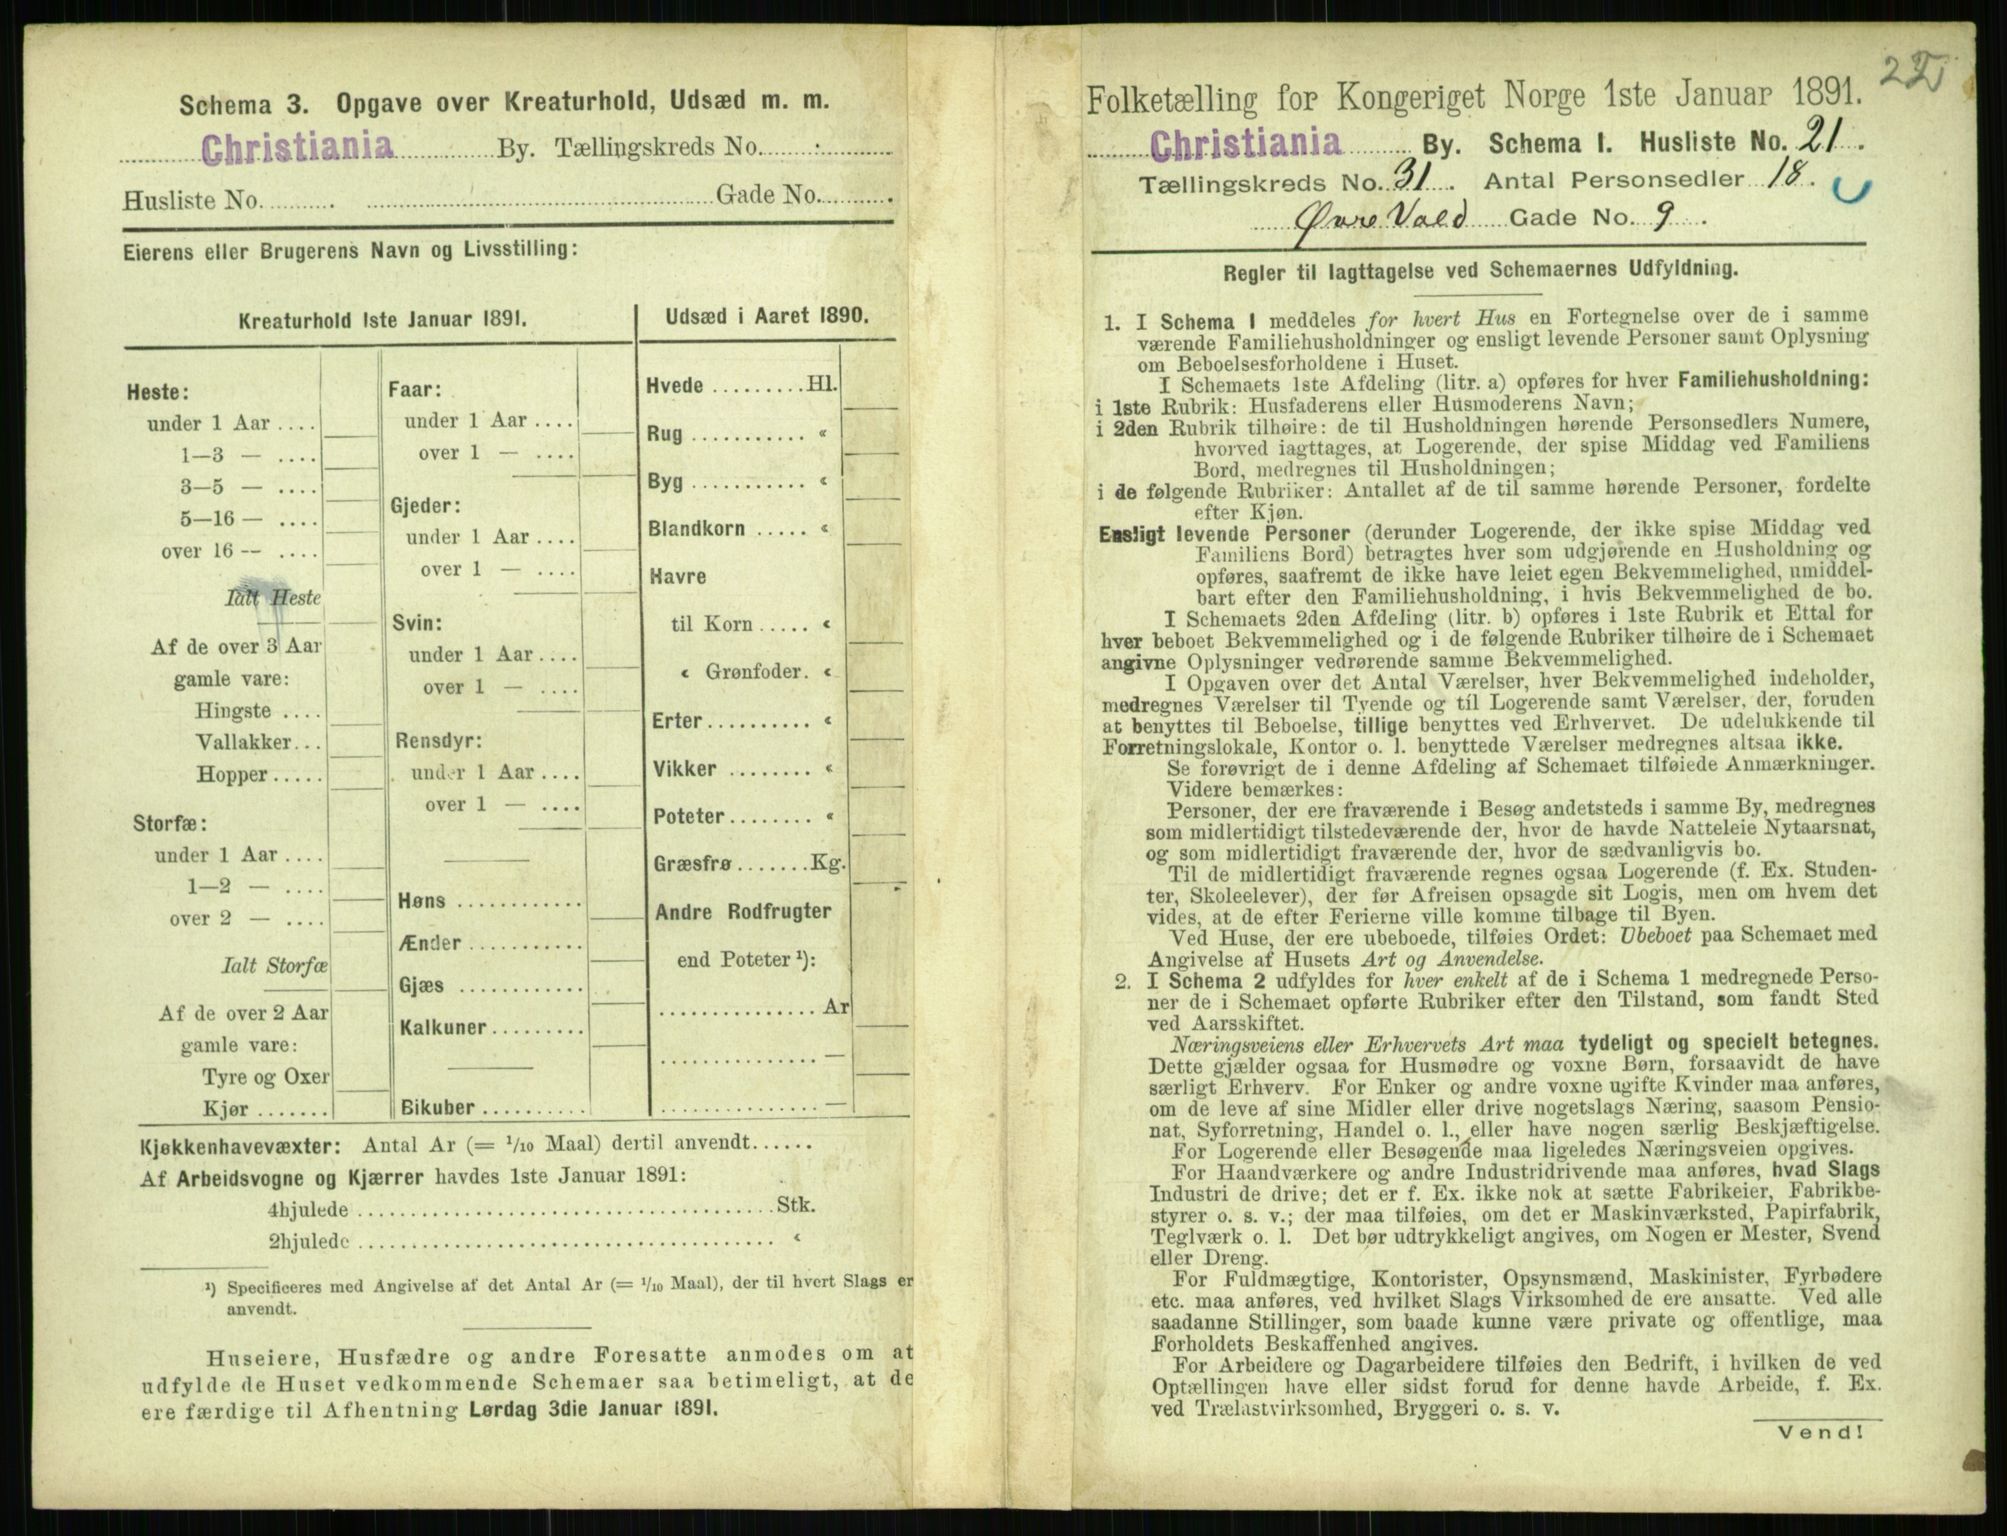 Schema 3. Opgave over Kreaturhold, Udsæd m. m.
Christiania By. Tællingskreds No.
Husliste No. Gade No.
Eierens eller Brugerens Navn og Livsstilling:
Kreaturhold 1ste Januar 1891.
Heste:
under 1 Aar ....
1—3 — ....
3—5 — ....
5—16 — ....
over 16 — ....
Ialt Heste
Af de over 3 Aar
gamle vare:
Hingste ....
Vallakker...
Hopper.....
Storfæ:
under 1 Aar ....
1—2 — ....
over 2 — ....
Ialt Storfæ
Af de over 2 Aar
gamle vare:
Tyre og Oxer
Kjør .......
Faar:
under 1 Aar ....
over 1 — ....
Gjeder:
under 1 Aar ....
over 1 — ....
Svin:
under 1 Aar ....
over 1 — ....
Rensdyr:
under 1 Aar ....
over 1 — ....
Høns ............
Ænder ...........
Gjæs ............
Kalkuner.........
Bikuber..........
Udsæd i Aaret 1890.
Hvede .........Hl.
Rug ........... «
Byg ........... «
Blandkorn ..... «
Havre
til Korn ..... «
« Grønfoder. «
Erter.......... «
Vikker ........ «
Poteter........ «
Græsfrø.......Kg.
Andre Rodfrugter
end Poteter ¹):
............... Ar
............... —
............... —
Kjøkkenhavevæxter: Antal Ar (= 1/10 Maal) dertil anvendt......
Af Arbeidsvogne og Kjærrer havdes 1ste Januar 1891:
4hjulede .......................................Stk.
2hjulede ....................................... «
¹) Specificeres med Angivelse af det Antal Ar (= 1/10 Maal), der til hvert Slags er
anvendt.
Huseiere, Husfædre og andre Foresatte anmodes om at
udfylde de Huset vedkommende Schemaer saa betimeligt, at de
ere færdige til Afhentning Lørdag 3die Januar 1891.
Folketælling for Kongeriget Norge 1ste Januar 1891.
Christiania By. Schema I. Husliste No. 21.
Tællingskreds No. 31. Antal Personsedler 18.
Øvre Vold Gade No. 9.
Regler til Iagttagelse ved Schemaernes Udfyldning.
1. I Schema 1 meddeles for hvert Hus en Fortegnelse over de i samme
værende Familiehusholdninger og ensligt levende Personer samt Oplysning
om Beboelsesforholdene i Huset.
I Schemaets 1ste Afdeling (litr. a) opføres for hver Familiehusholdning:
i 1ste Rubrik: Husfaderens eller Husmoderens Navn;
i 2den Rubrik tilhøire: de til Husholdningen hørende Personsedlers Numere,
hvorved iagttages, at Logerende, der spise Middag ved Familiens
Bord, medregnes til Husholdningen;
i de følgende Rubriker: Antallet af de til samme hørende Personer, fordelte
efter Kjøn.
Ensligt levende Personer (derunder Logerende, der ikke spise Middag ved
Familiens Bord) betragtes hver som udgjørende en Husholdning og
opføres, saafremt de ikke have leiet egen Bekvemmelighed, umiddel-
bart efter den Familiehusholdning, i hvis Bekvemmelighed de bo.
I Schemaets 2den Afdeling (litr. b) opføres i 1ste Rubrik et Ettal for
hver beboet Bekvemmelighed og i de følgende Rubriker tilhøire de i Schemaet
angivne Oplysninger vedrørende samme Bekvemmelighed.
I Opgaven over det Antal Værelser, hver Bekvemmelighed indeholder,
medregnes Værelser til Tyende og til Logerende samt Værelser, der, foruden
at benyttes til Beboelse, tillige benyttes ved Erhvervet. De udelukkende til
Forretningslokale, Kontor o. l. benyttede Værelser medregnes altsaa ikke.
Se forøvrigt de i denne Afdeling af Schemaet tilføiede Anmærkninger.
Videre bemærkes:
Personer, der ere fraværende i Besøg andetsteds i samme By, medregnes
som midlertidigt tilstedeværende der, hvor de havde Natteleie Nytaarsnat,
og som midlertidigt fraværende der, hvor de sædvanligvis bo.
Til de midlertidigt fraværende regnes ogsaa Logerende (f. Ex. Studen-
ter, Skoleelever), der før Afreisen opsagde sit Logis, men om hvem det
vides, at de efter Ferierne ville komme tilbage til Byen.
Ved Huse, der ere ubeboede, tilføies Ordet: Ubeboet paa Schemaet med
Angivelse af Husets Art og Anvendelse.
2. I Schema 2 udfyldes for hver enkelt af de i Schema 1 medregnede Perso-
ner de i Schemaet opførte Rubriker efter den Tilstand, som fandt Sted
ved Aarsskiftet.
Næringsveiens eller Erhvervets Art maa tydeligt og specielt betegnes.
Dette gjælder ogsaa for Husmødre og voxne Børn, forsaavidt de have
særligt Erhverv. For Enker og andre voxne ugifte Kvinder maa anføres,
om de leve af sine Midler eller drive nogetslags Næring, saasom Pensio-
nat, Syforretning, Handel o. l., eller have nogen særlig Beskjæftigelse.
For Logerende eller Besøgende maa ligeledes Næringsveien opgives.
For Haandværkere og andre Industridrivende maa anføres, hvad Slags
Industri de drive; det er f. Ex. ikke nok at sætte Fabrikeier, Fabrikbe-
styrer o. s. v.; der maa tilføies, om det er Maskinværksted, Papirfabrik,
Teglværk o. l. Det bør udtrykkeligt angives, om Nogen er Mester, Svend
eller Dreng.
For Fuldmægtige, Kontorister, Opsynsmænd, Maskinister, Fyrbødere
etc. maa anføres, ved hvilket Slags Virksomhed de ere ansatte. Ved alle
saadanne Stillinger, som baade kunne være private og offentlige, maa
Forholdets Beskaffenhed angives.
For Arbeidere og Dagarbeidere tilføies den Bedrift, i hvilken de ved
Optællingen have eller sidst forud for denne havde Arbeide, f. Ex.
ved Trælastvirksomhed, Bryggeri o. s. v.
Vend!